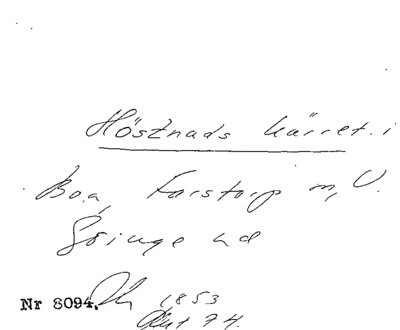 Höstnads kärret. i
Boa, Farstorp m, V.
Göinge hd
Nr 8094. 1853
74.